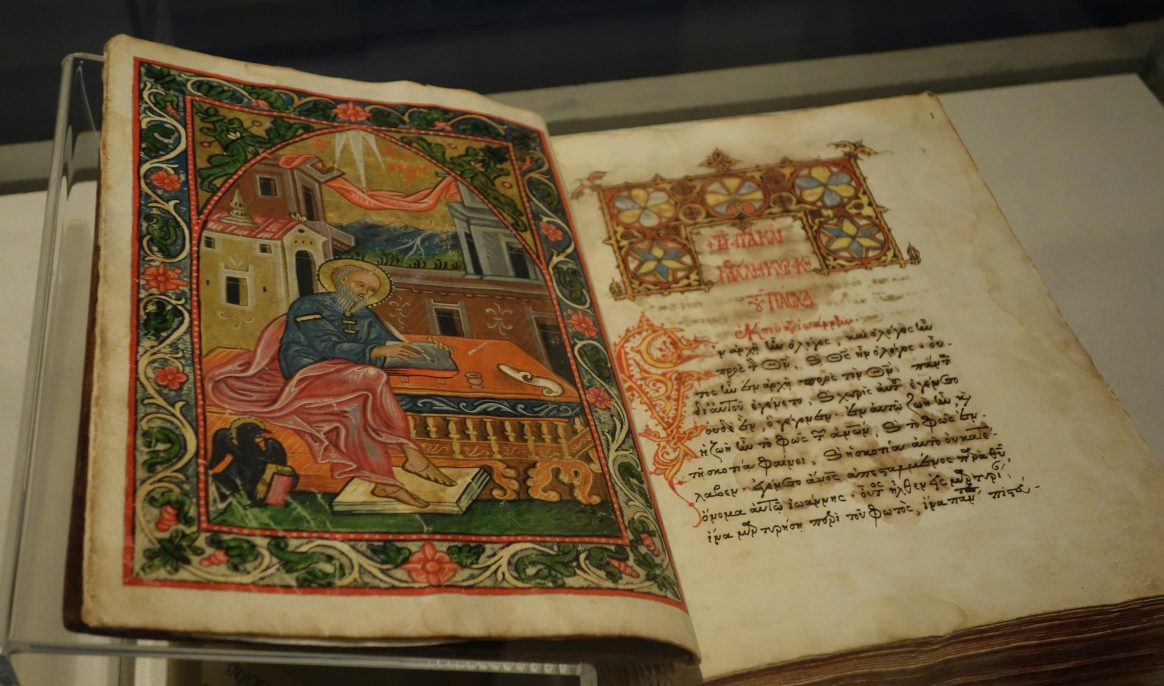 ΚΑΙ
ΠΑΣΧΑ
ἐκ τοῦ κατὰ ἰωάννην
ἐν ἀρχῇ ἦν ὁ λόγος, καὶ ὁ λόγος ἦν
πρὸς τὸν θν, καὶ θς ἦν ὁ λόγος. οὗ
τος ἦν ἐν ἀρχῇ πρὸς τὸν θν. πάντ
δι αὐτοῦ ἐγένετο, καὶ χωρὶς αὐτ ἐγένετο
οὐδὲ ἓν, ὃ γέγονεν. ἐν αὐτῷ ζωὴ ἦν, καὶ
ἡ ζωὴ ἦν τὸ φῶς τ ἀνων, καὶ τὸ φῶς ἐν
τῇ σκοτίᾳ φαίνει, καὶ ἡ σκοτία αὐτὸ οὐ κατέ
λαβεν. ἐγένετο ἄνος ἀπεσταλμένος παρὰ θυ
ὄνομα αὐτῷ ἰωάννης. οὗτος ἦλθεν εἰς μρτυρί
ἵνα μρτυρήσῃ περὶ τοῦ φωτός, ἵνα πάν πιστεύ